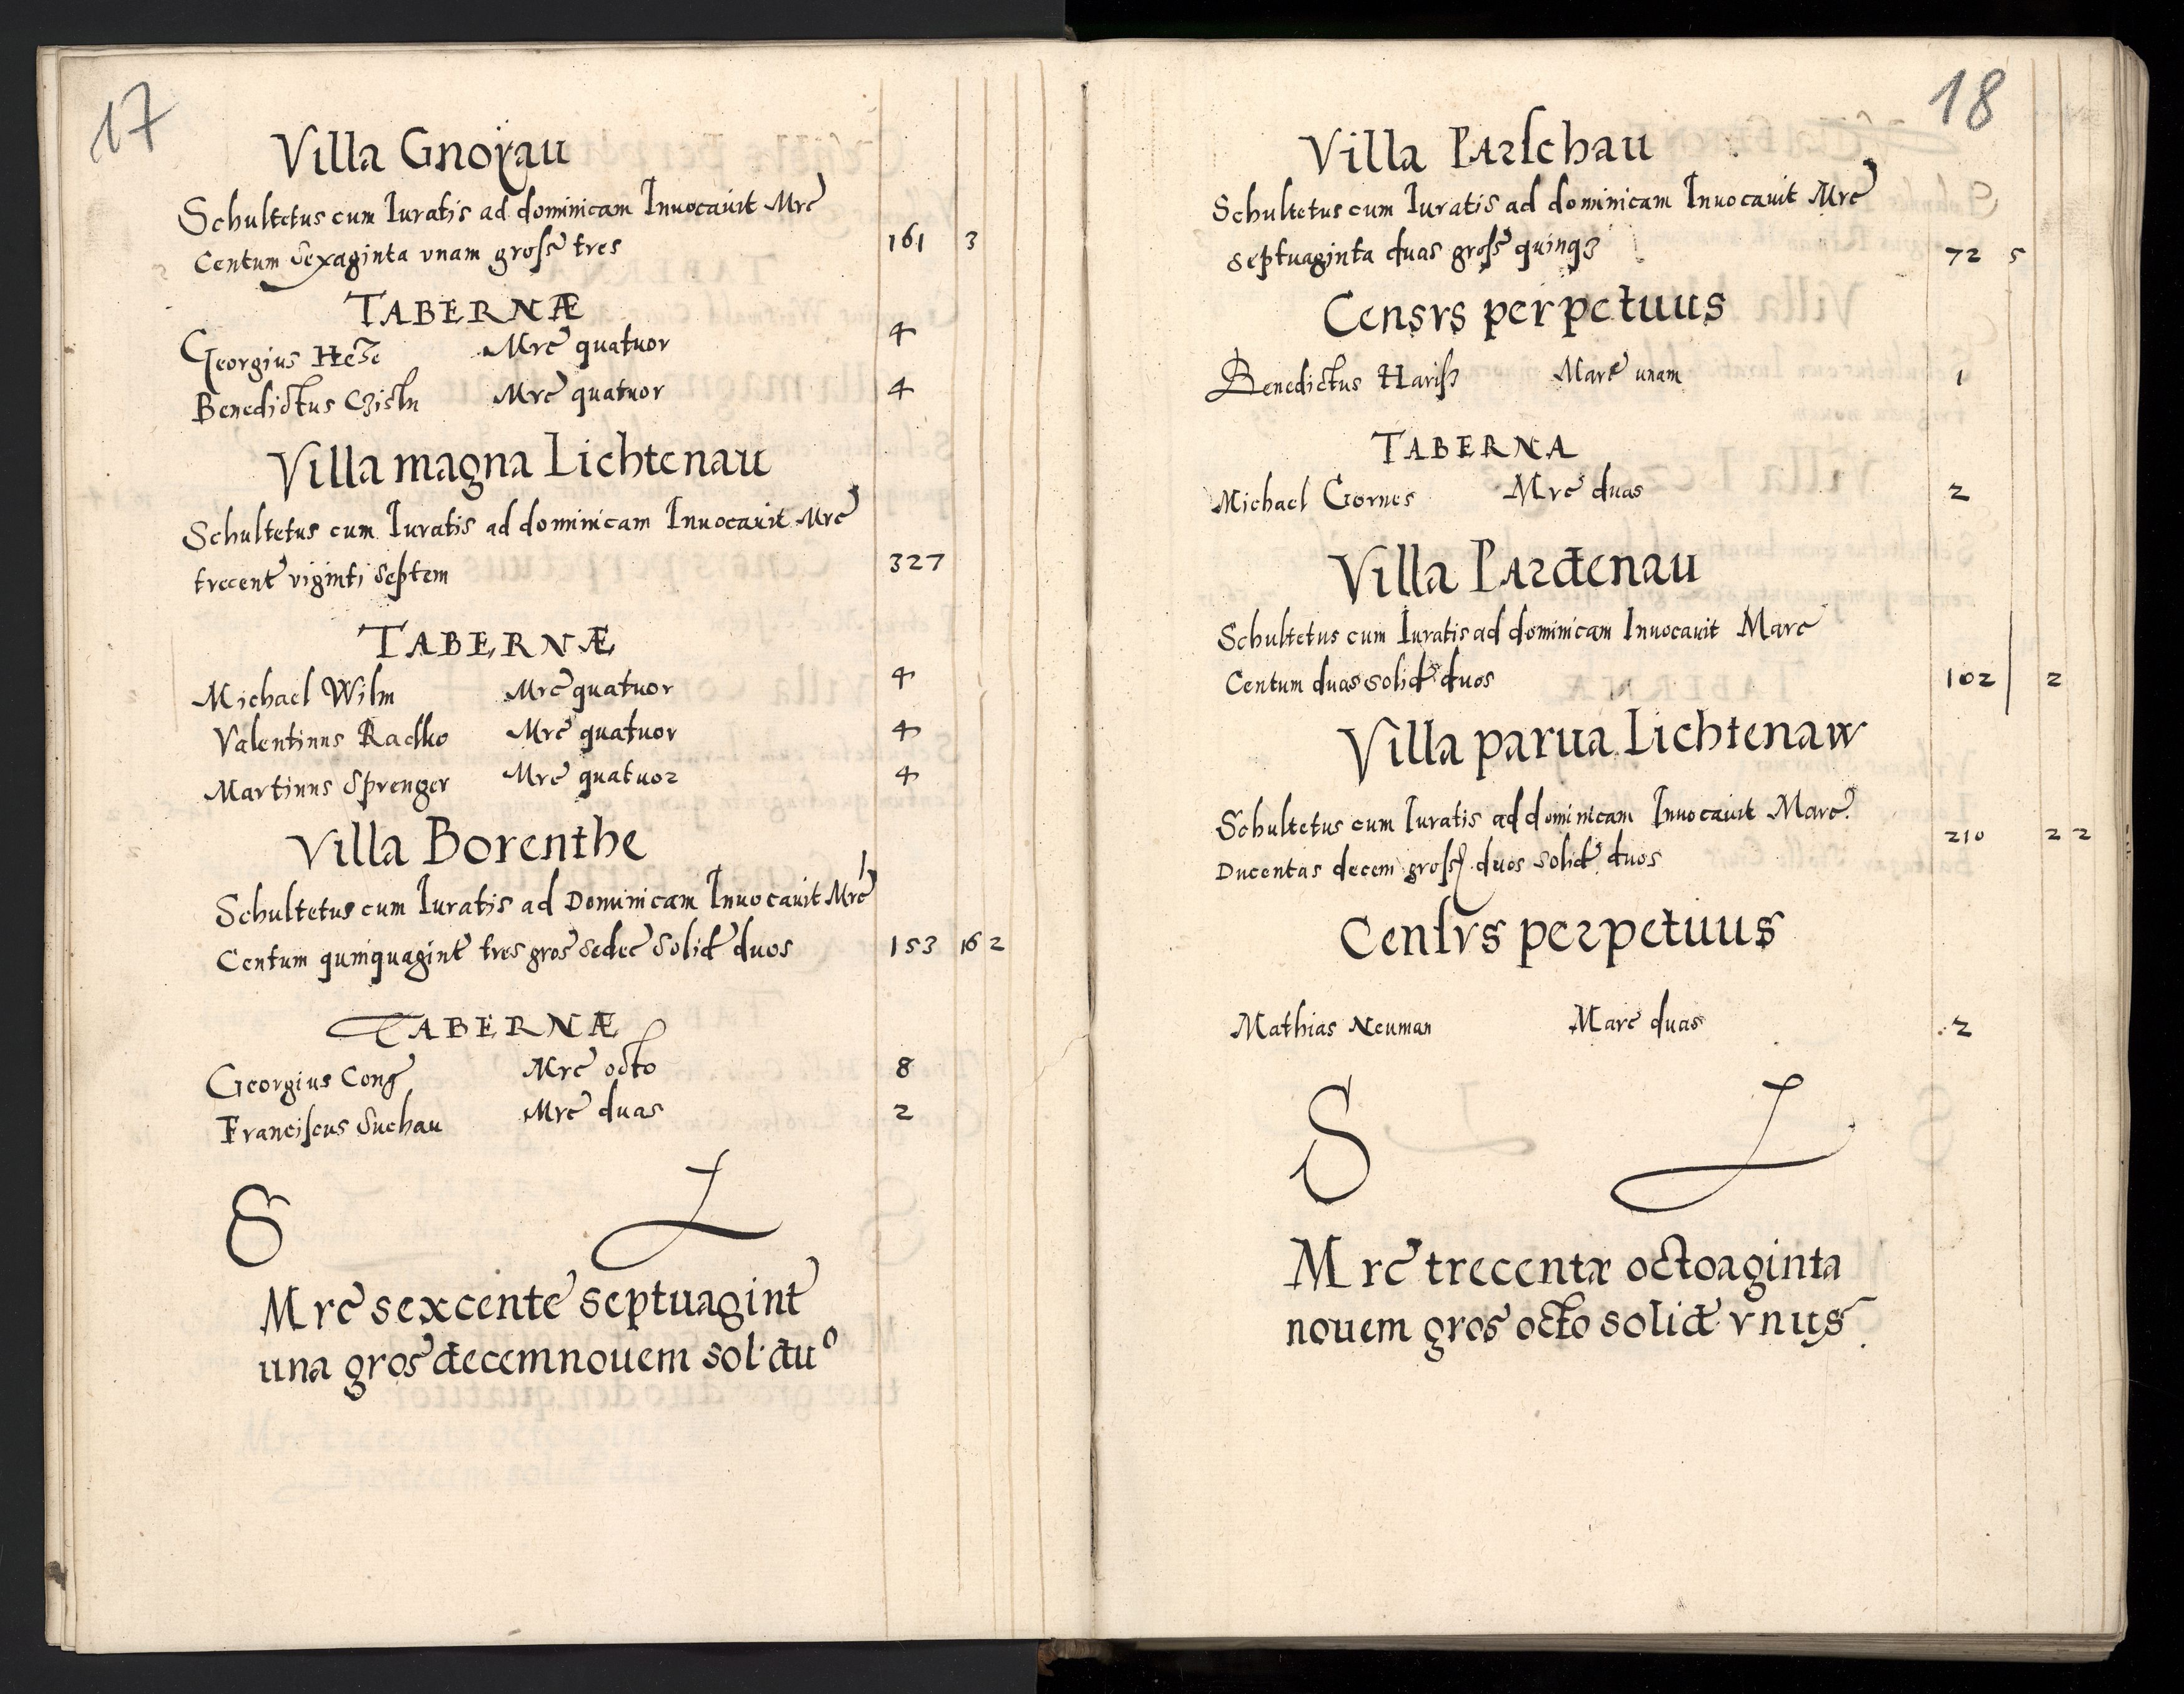 17
Villa Gnoyau
Schultetus cum Iuratis ad dominicam Inuocauit Mrc
Centum Sexaginta vnam gross tres 161 3
TABERNÆ
Georgius Heze Mrc quatuor 4
Benedictus Czisln Mrc quatuor 4
Villa magna Lichtenau
Schultetus cum Iuratis ad dominicam Inuocauit Mrc
trecent viginti Septem 327
TABERNÆ
Michael Wilm Mrc quatuor 4
Valentinus Radko Mrc quatuor 4
Martinus Sprenger Mrc quatuor 4
Villa Borenthe
Schultetus cum Iuratis ad Dominicam Inuocauit Mrc
Centum quinquagint tres gros Sedec Solid duos 153 16 2
TABERNÆ
Georgius Cong Mrc octo 8
Franciscus Suchau Mrc duas 2
S L
Mrc sexcente septuagint
una gros decemnouem sol. duo
18
Villa Parschau
Schultetus cum Iuratis ad dominicam Inuocauit Mrc
septuaginta duas gross quinqz 72 5
Censvs perpetuus
Benedictus Harish Marc unam 1
TABERNA
Michael Gornes Mrc duas 2
Villa Pardenau
Schultetus cum Iuratis ad dominicam Inuocauit Marc
Centum duas solid duos 102 2
Villa parua Lichtenaw
Schultetus cum Iuratis ad dominicam Inuocauit Marc.
Ducentas decem gross duos solid duos 210 2 2
Censvs perpetuus
Mathias Neuman Marc duas 2
S L
Mrc trecentæ octoaginta
nouem gros octo solid vnus.